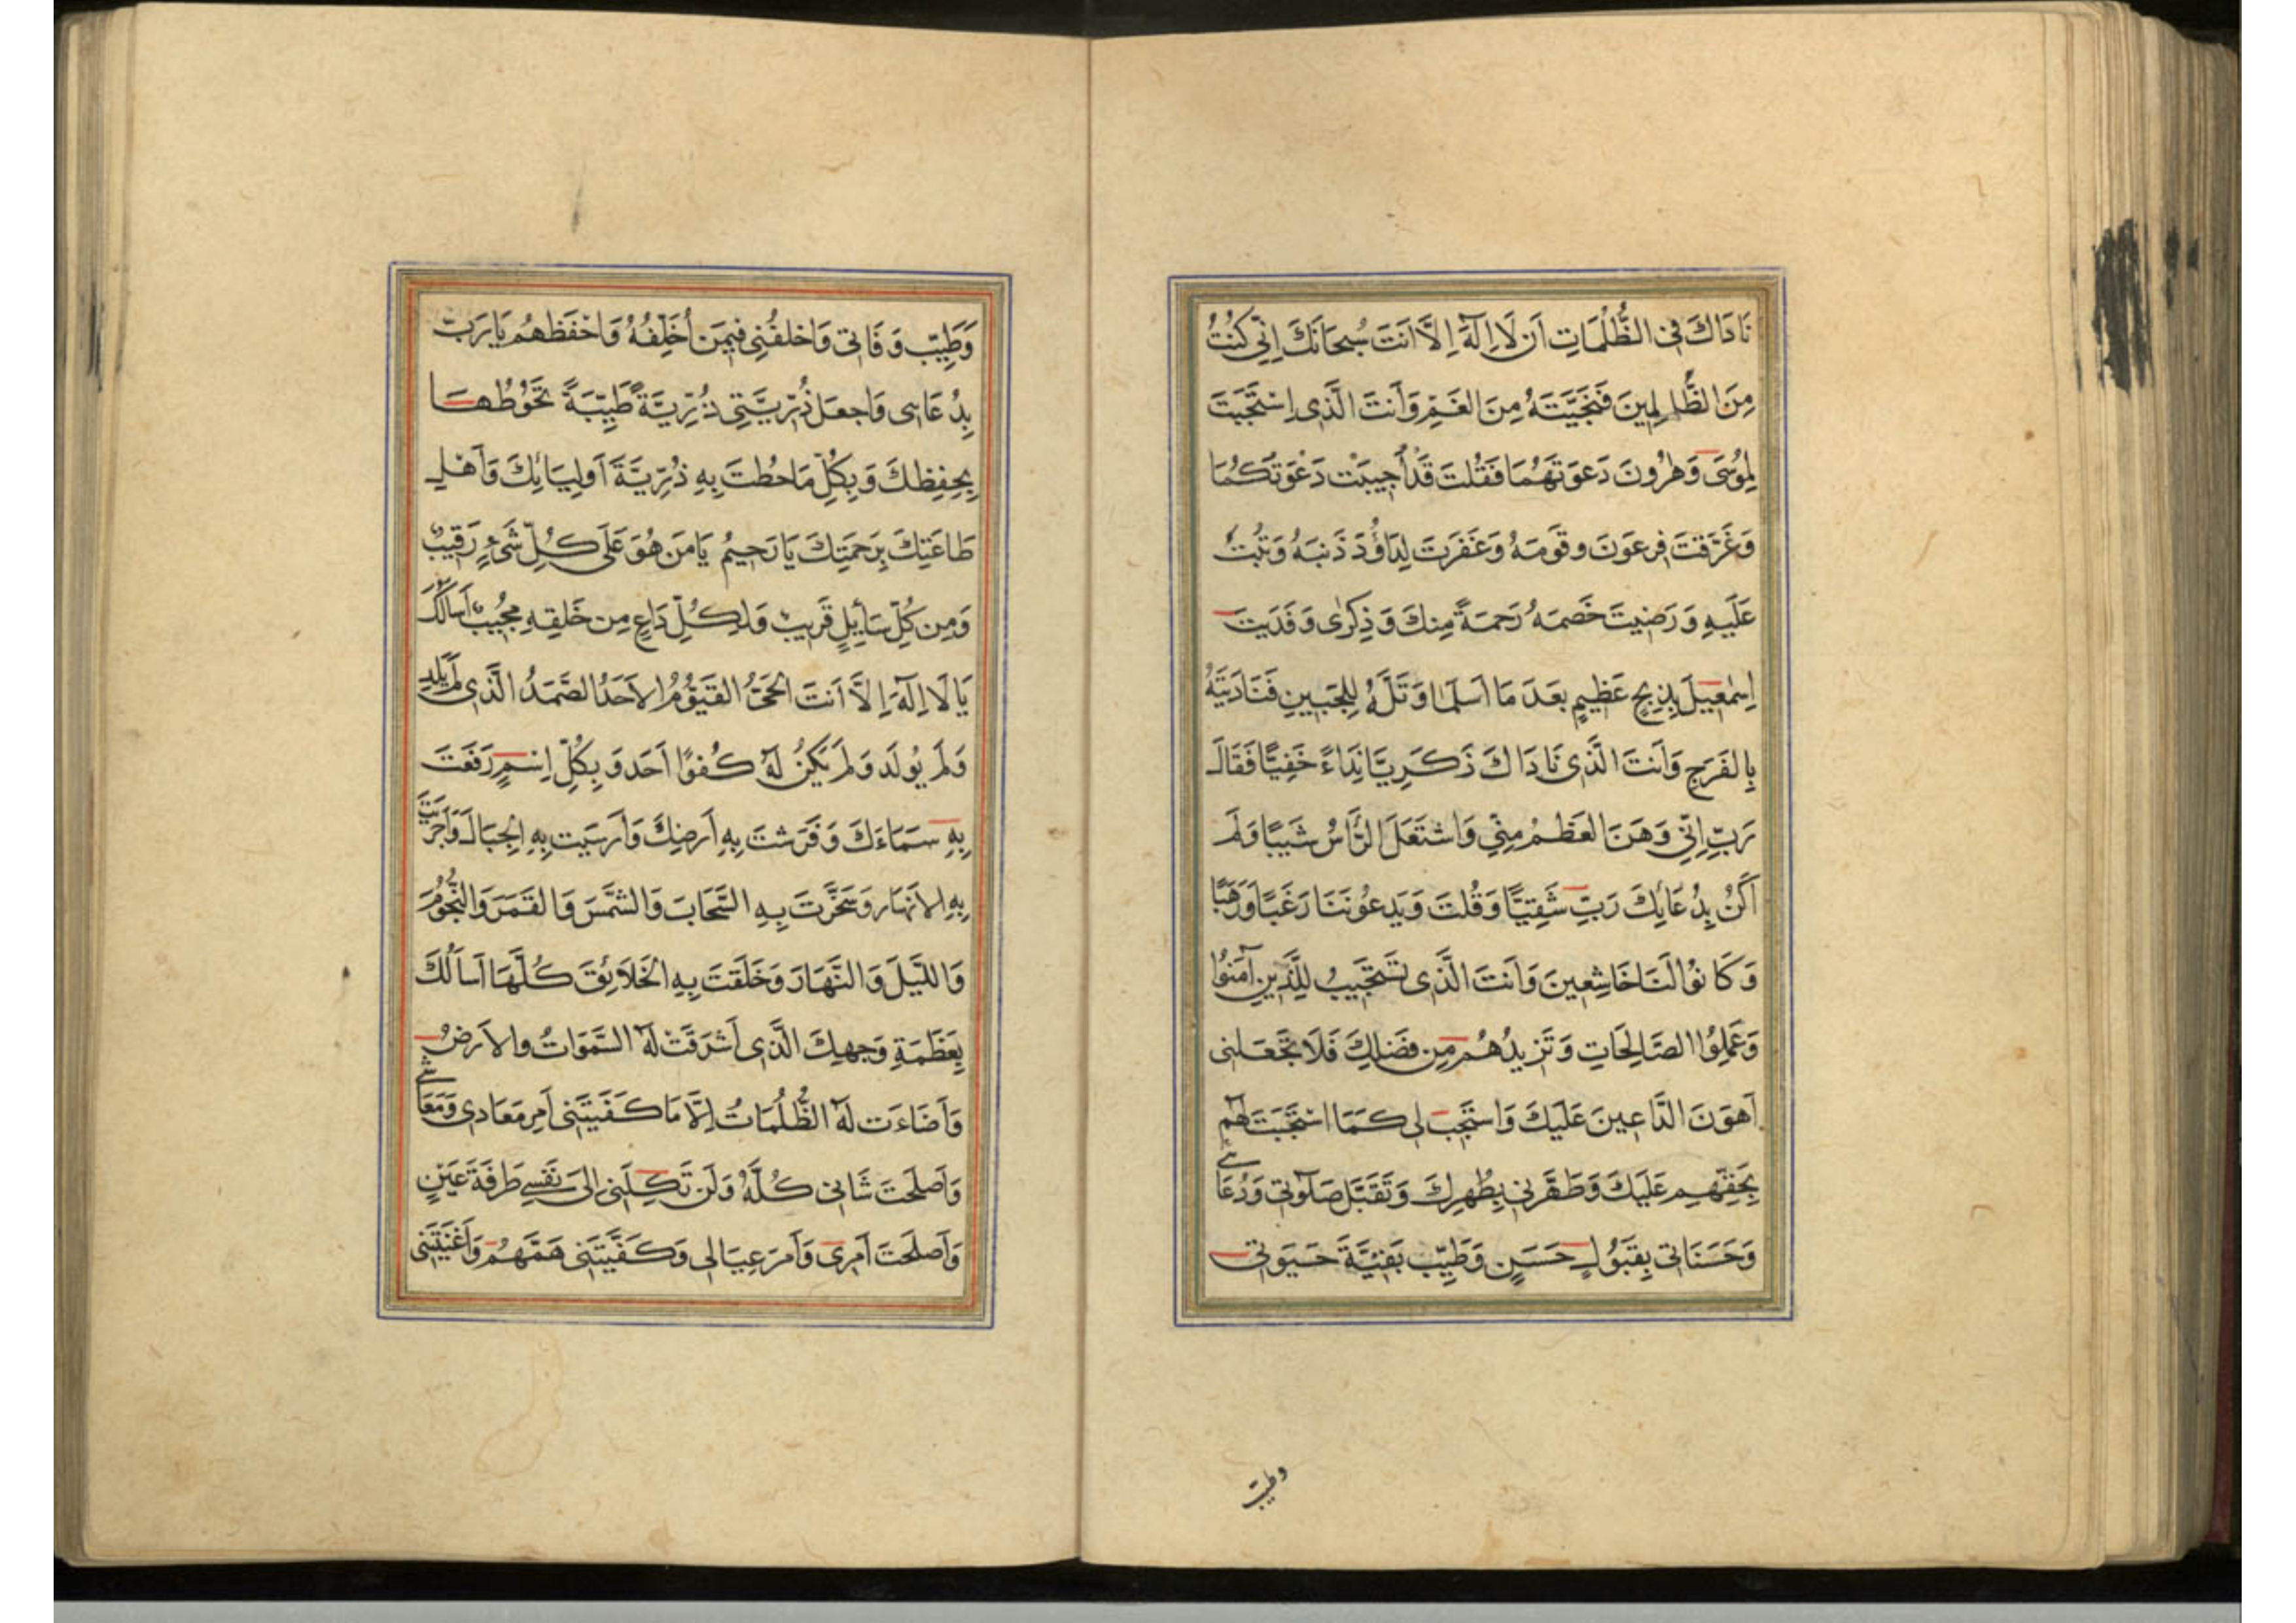 نَادَاكَ فِي الظُّلُمَاتِ اَن لَا اِلٰهَ اِلَّا اَنتَ سُبحَانَكَ اِنِّي كُنتُ
مِنَ الظَّالِمِينَ فَنَجَّيتَهُ مِنَ الغَمِّ وَاَنتَ الَّذِي اِسْتَجَبتَ
لِمُوسَى وَهٰرُونَ دَعوَتَهُمَا فَقُلتَ قَدْ اُجِيبَتْ دَعْوَتُكُمَا
وَغَرَّقتَ فِرعَونَ وقَومَهُ وَغَفَرتَ لِدَاوُدَ ذَنبَهُ وَتُبتَ
عَلَيهِ وَرَضِيتَ خَصمَهُ رَحمَةً مِنكَ وَذِكرٰى وَفَدَيتَ
اِسْمٰعِيلَ بِذِبحٍ عَظِيمٍ بَعدَ مَا اَسلَمَا وَتَلَّهُ لِلجَبِينِ فَنَادَيتَهُ
بِالفَرَجِ وَاَنتَ الَّذِي نَادَاكَ ذَكَرِيَّا نِدَاءً خَفِيًّا فَقَالَ
رَبِّ اِنِّي وَهَنَ العَظمُ مِنِّي وَاشتَعَلَ الرَّاسُ شَيبًا وَلَم
اَكُن بِدُعَائِكَ رَبِّ شَقِيًّا وَقُلتَ وَيَدعُونَنَا رَغَبًا وَرَهَبًا
وَكَانُوا لَنَا خَاشِعِينَ وَاَنتَ الَّذِي تَستَجِيبُ لِلَّذِينَ اٰمَنُوا
وَعَمِلُوا الصَّالِحَاتِ وَتَزِيدُهُم مِن فَضلِكَ فَلَا تَجعَلنِي
اَهوَنَ الدَّاعِينَ عَلَيكَ وَاستَجِب لِي كَمَا اسْتَجَبتَ لَهُم
بِحَقِّهِم عَلَيكَ وَطَهِّرنِي بِطُهرِكَ وَتَقَبَّل صَلٰوتِي وَدُعَائِي
وَحَسَنَاتِي بِقَبُولٍ حَسَنٍ وَطَيِّب بَقِيَّةَ حَيَوتِي
وطيب
وَطَيِّب وَفَاتِي وَاخلُفنِي فِيمَن اُخَلِّفُهُ وَاحْفَظهُم يَا رَبِّ
بِدُعَائِي وَاجعَل ذُرِّيَّتِي ذُرِّيَّةً طَيِّبَةً تَحُوطُهَا
بِحِفظِكَ وَبِكُلِّ مَا حُطتَ بِهِ ذُرِّيَّةَ اَولِيَائِكَ وَاَهْلِ
طَاعَتِكَ بِرَحمَتِكَ يَا رَحِيمُ يَا مَن هُوَ عَلَى كُلِّ شَيءٍ رَقِيبٌ
وَمِن كُلِّ سَائِلٍ قَرِيبٌ وَلِكُلِّ دَاعٍ مِن خَلقِهِ مُجِيبٌ اَسالُكَ
يَا لَا اِلٰهَ اِلَّا اَنتَ الحَيُّ القَيُّومُ الاَحَدُ الصَّمَدُ الَّذِي لَم يَلِد
وَلَم يُولَد وَلَم يَكُن لَهُ كُفوًا اَحَد وَبِكُلِّ اِسمٍ رَفَعتَ
بِهِ سَمَاءَكَ وَفَرَشتَ بِهِ اَرضِكَ وَاَرسَيت بِهِ الجِبَالَ وَاَجرَيتَ
بِهِ الاَنهَار وَسَخَّرتَ بِهِ السَّحَابَ وَالشَّمسَ وَالقَمَرَ وَالنُّجُومَ
وَاللَّيلَ وَالنَّهَارَ وَخَلَقتَ بِهِ الخَلَائِقَ كُلَّهَا اَسأَلُكَ
بِعَظَمَةِ وَجهِكَ الَّذِي اَشرَقَتْ لَهُ السَّمٰوَاتُ والاَرضُ
وَاَضَاءَت لَهُ الظُّلُمَاتُ اِلَّا مَا كَفَيتَنِي اَمر مَعَادِي وَمَعَاشِي
وَاَصلَحتَ شَانِي كُلَّهُ وَلَن تَكِلَنِي اِلَى نَفسِي طَرفَةَ عَيْنٍ
وَاَصلَحتَ اَمرِي وَاَمرَ عِيَالِي وَكَفَّيتَنِي هَمَّهُم وَاَغنَيتَنِي